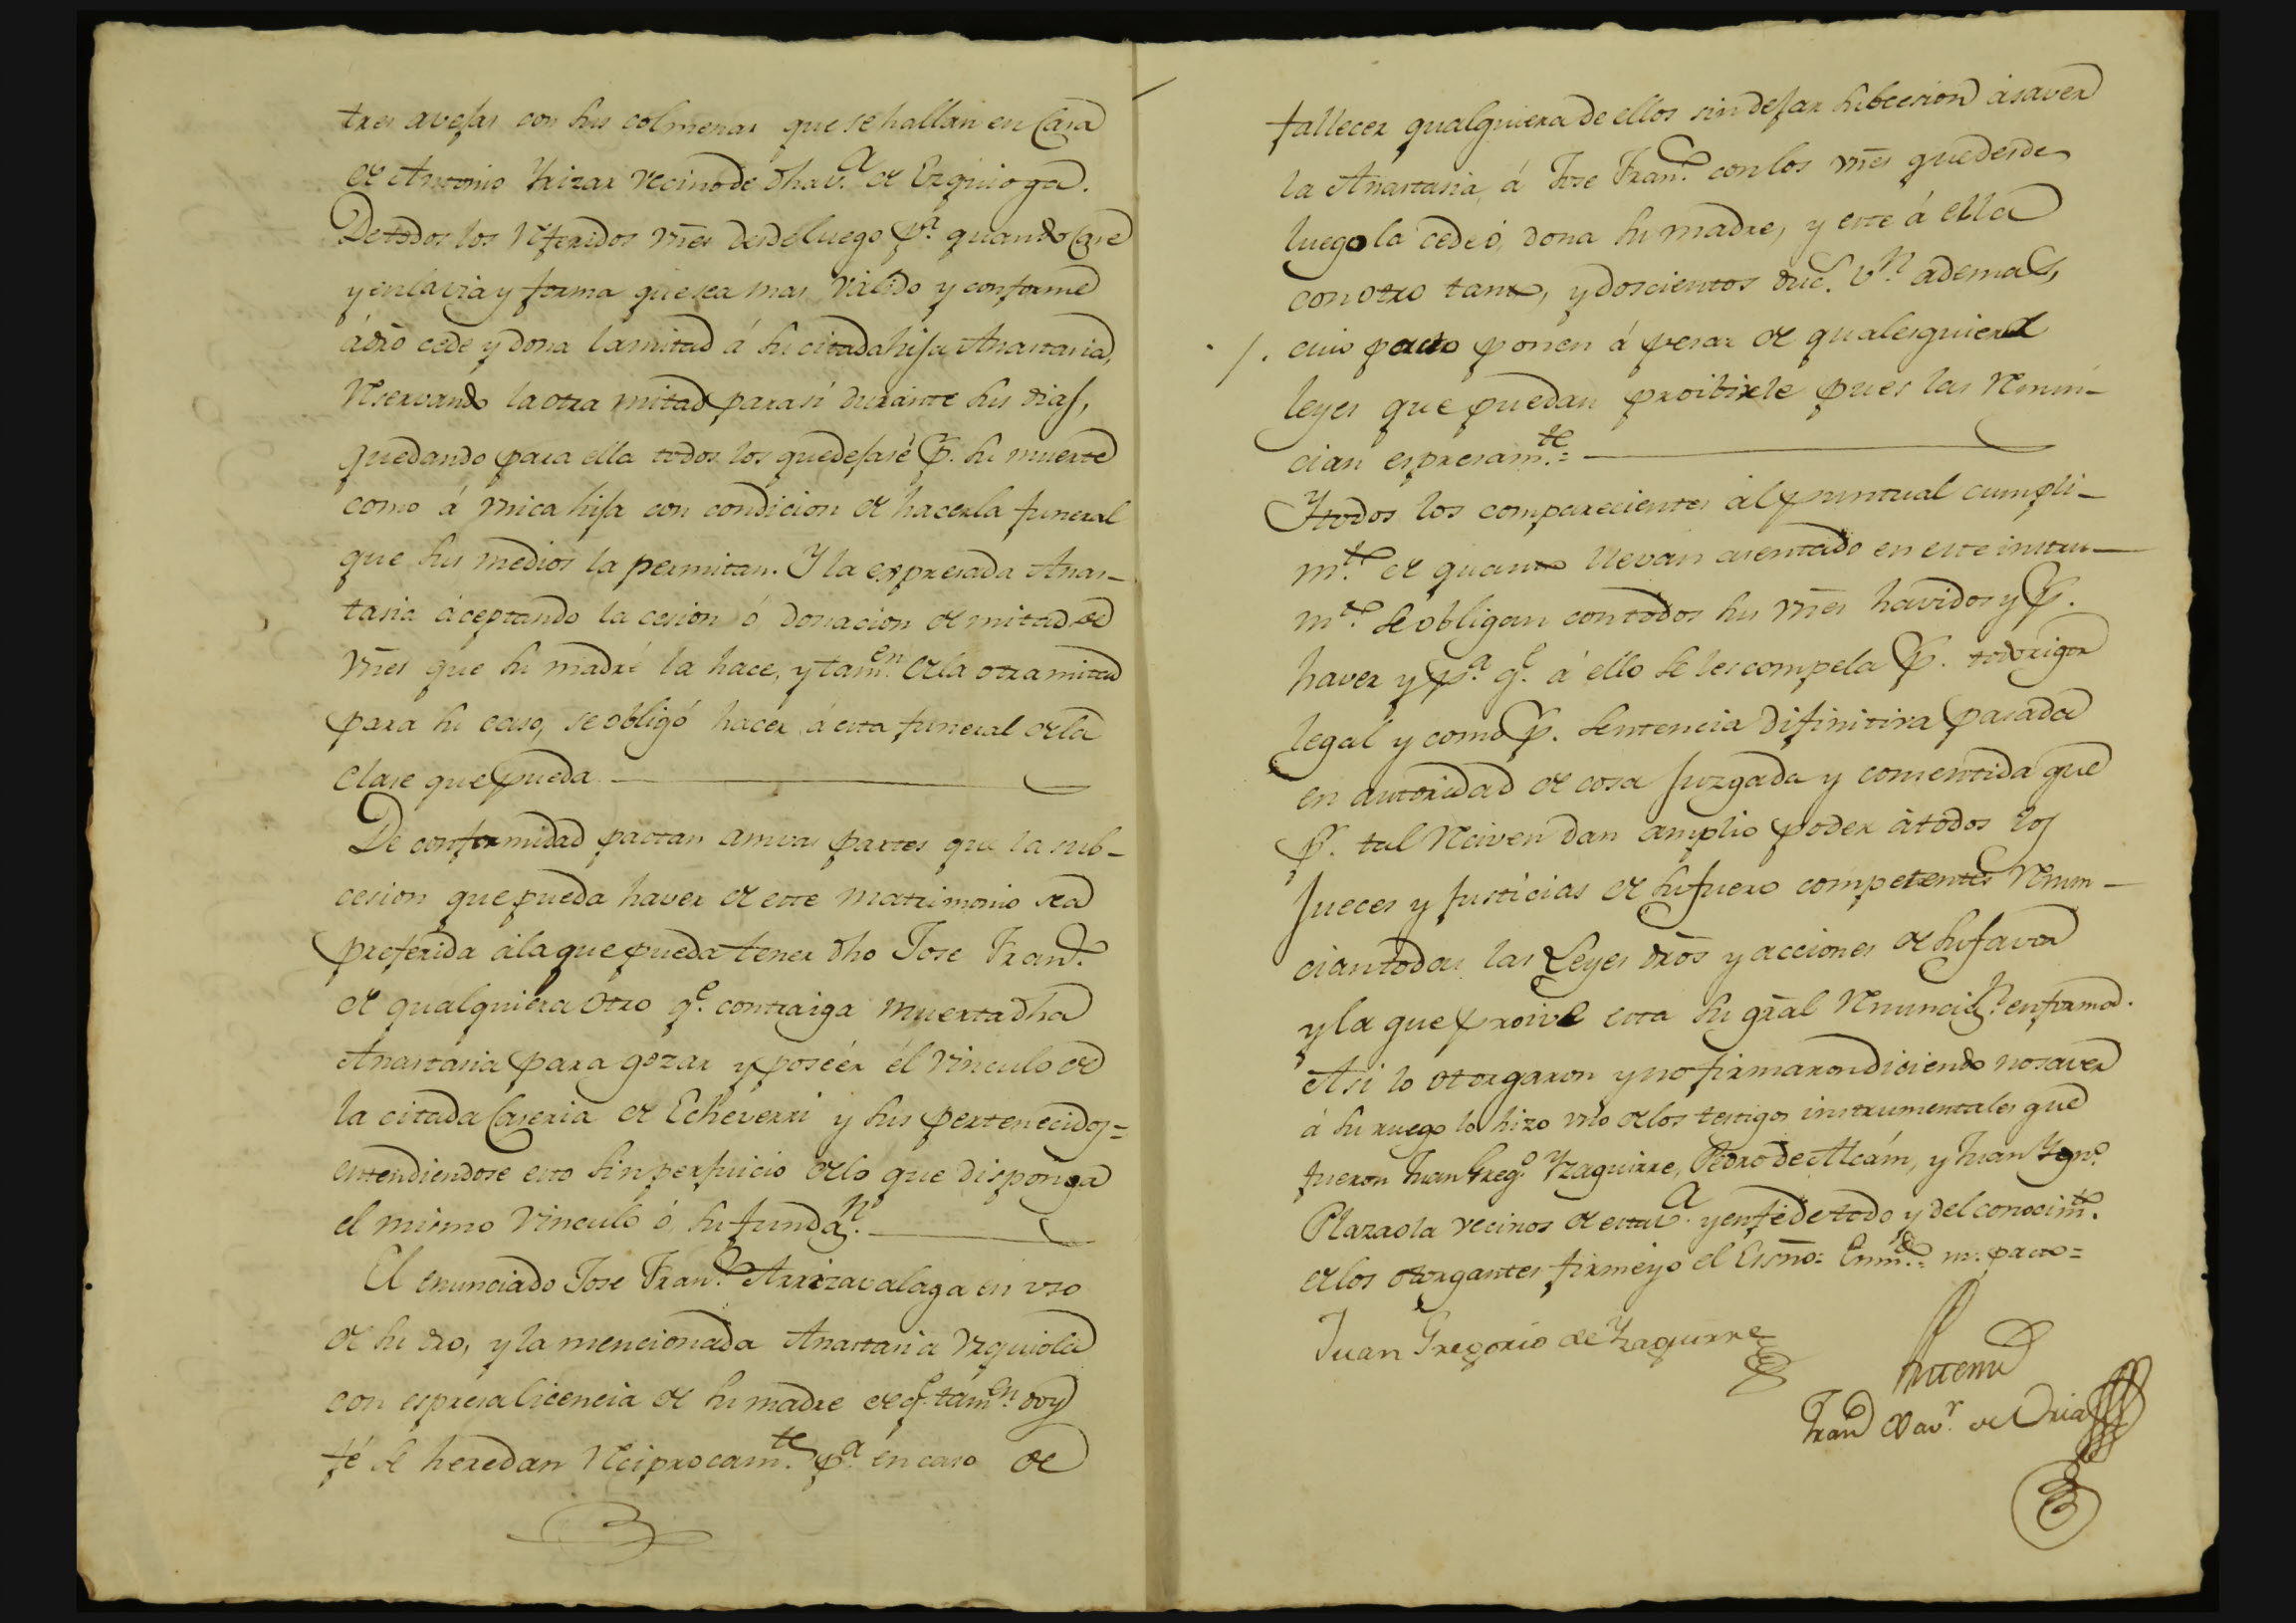 tres avejas con sus colmenas que se hallan en Casa
de Antonio Yrizar vecino de dha v.ª de Ezquioga.
De todos los referidos vnēs desdeluego p.ª quando Case
y en la via y forma que sea mas valido y conforme
á dro cede y dona la mitad á su citada hija Anastasia,
reservando la otra mitad para sí durante sus dias,
quedando para ella todos los que dejaré p.r su muerte
como á vnica hija con condicion de hacerla funeral
que sus medios la permitan. Y la expresada Anas-
tasia áceptando la cesion ó donacion de mitad de
vnēs que su madre la hace, y tam.en de la otra mitad
para su caso, se obligó hacer á esta funeral de la
clase que pueda
De conformidad pactan amvas partes que la sub-
cesion que pueda haver de este matrimonio sea
preferida á la que pueda tener dho Jose Fran.co
de qualquiera otro q.e contraiga muerta dha
Anastasia para gozar y poséér él vinculo de
la citada Caseria de Echeverri y sus pertenecidos=
entendiendose esto sin perjuicio de lo que disponga
el mismo vinculo ó su fundaz.n
El enunciado Jose Fran.co Arrizavalaga en vso
de su dro, y la mencionada Anastasia Vrquiola
con espresa licencia de su madre de q.e tam.en doy
fé se heredan reciprocam.te p.ª en caso de
fallecer qualquiera de ellos sin dejar subcesion ásaver
la Anastasia, á Jose Fran.co con los vnēs que desde
luego la cede ó dona su madre, y este á ella
con otro tanto, y doscientos duc.s v.n ademas,
cuio pacto ponen á pesar de qualesquiera
leyes que puedan proibirle pues las renun-
cian espresam.te=
Y todos los comparecientes ál puntual cumpli-
m.to de quanto llevan asentado en este instru-
m.to se obligan con todos sus vnēs havidos y p.r
haver y p.ª q.e á ello se les compela p.r todo rigor
legal y como p.r sentencia difinitiva pasada
en autoridad de cosa Juzgada y consentida que
p.r tal reciven dan amplio poder átodos los
Jueces y Justicias de su fuero competentes renun-
cian todas las Leyes drōs y acciones de su favor
y la que proive esta su grāl renunciaz.n en forma.
Asi lo otorgaron y no firmaron diciendo no saver
á su ruego lo hizo vno de los testigos instrumentales que
fueron Juan Greg.o Yzaguirre, Pedro de Alcám, y Juan Ygn.o
Plazaola vecinos de esta v.ª y en fé de todo y del conocim.to
de los otorgantes firme yo el Esnō= Enm.do= m. pacto=
Juan Gregorio de Yzaguirre
Antemi
Fran.co Xav.r de Oria